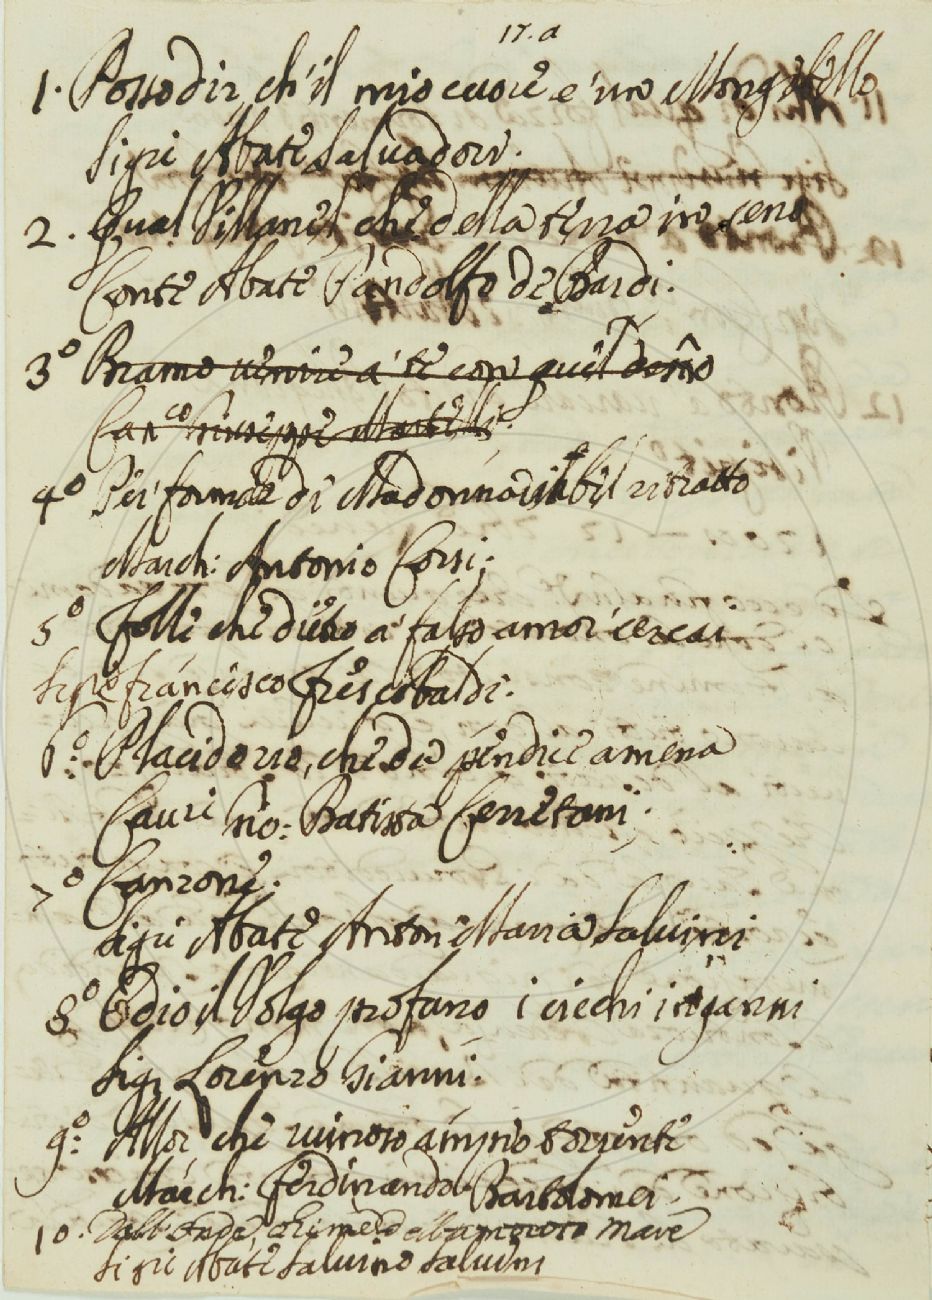 17. a
1. Posso dir, ch'il mio cuore è un Mongibello
Sig.ri Abate Salvadori.
2. Qual Villanel che della terra in seno
Conte Abate Pandolfo de Bardi.
3º Bramo venire a' te con quel
Can.co Giuseppe Martelli.
4º Per formar di Madonna il bel ritratto
March: Antonio Corsi.
5º Folle che dietro a' falso amor cercai
Sig.re Francisco Frescobaldi.
6º: Placido rio, che da pendice amena
Cav.ri Gio: Batista Cerretani.
7º Canzone.
Sig.ri Abate Anton Maria Salvini
8º Odio il Volgo profano i ciechi inganni
Sig.r Lorenzo Gianni.
9º: Allor che ruinoso ampio torrente
March: Ferdinando Bartolomei.
10. Dall'onde, ch'in mezzo mare
Sig.ri Abate Salvino Salvini